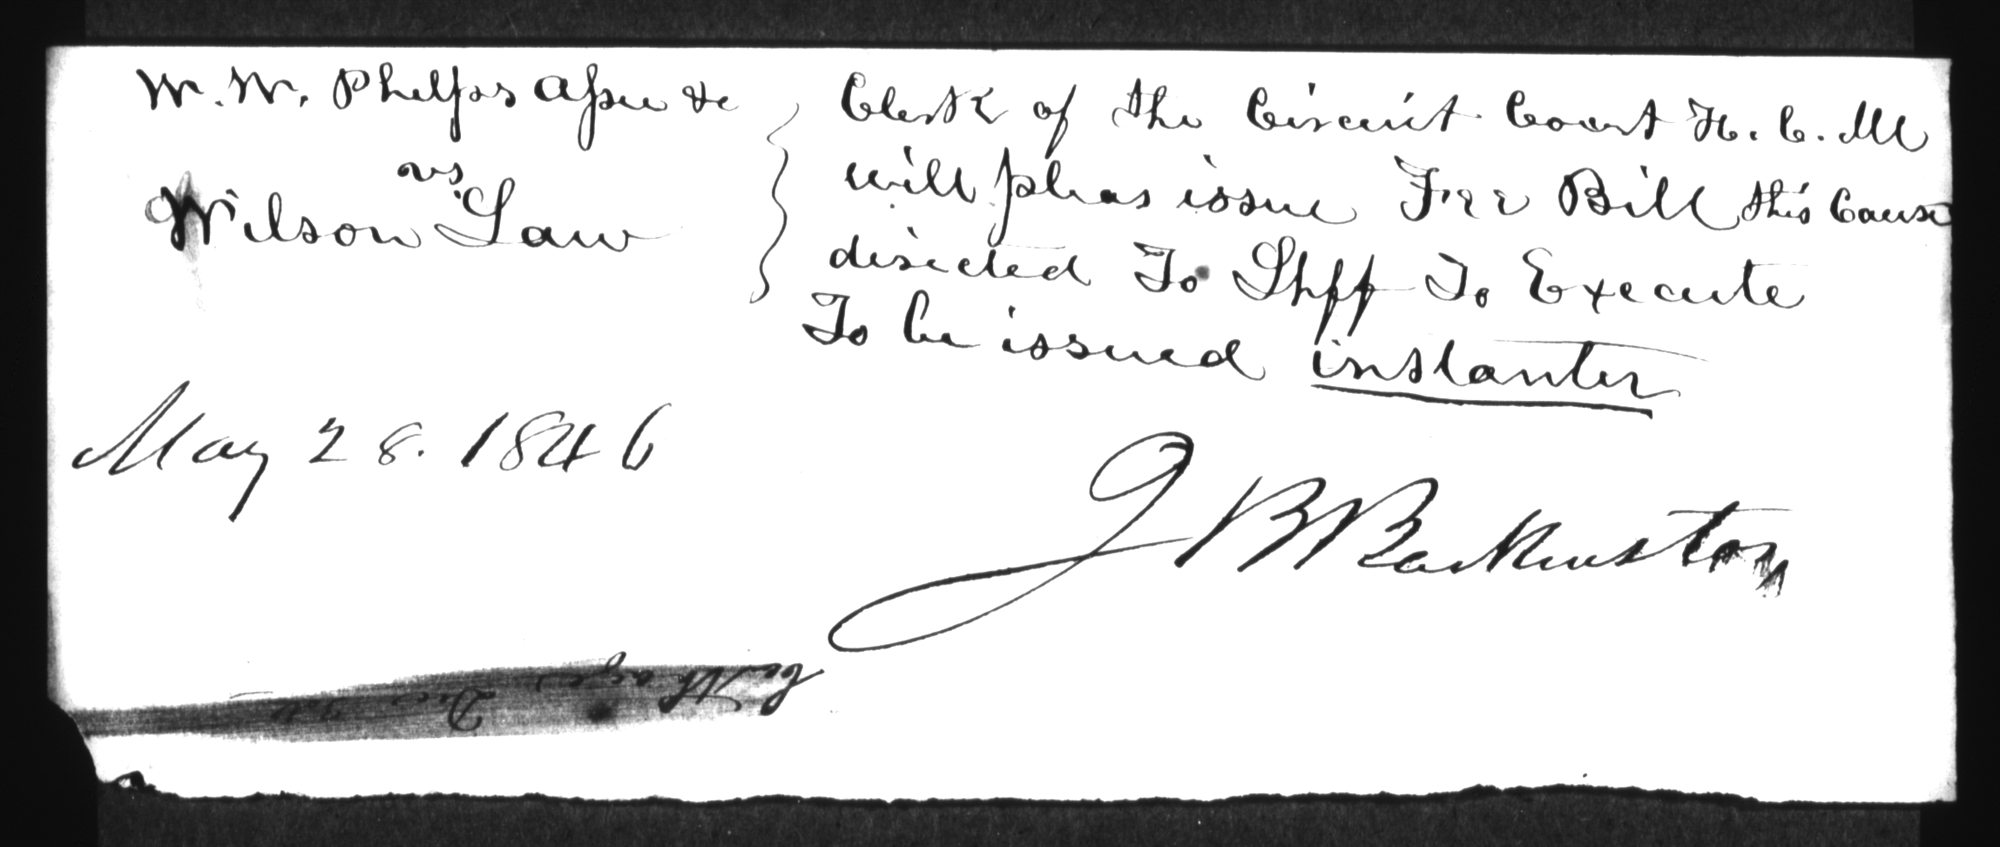 W. W. Phelps Assee &c
vs.
Wilson Law
Clerk of the Circuit Court H. C. Ill
will pleas issue Fee Bill this Cause
directed To Shff To Execute
To be issued instanter
May 28. 1846
J B Backenstos
Carthage Dec